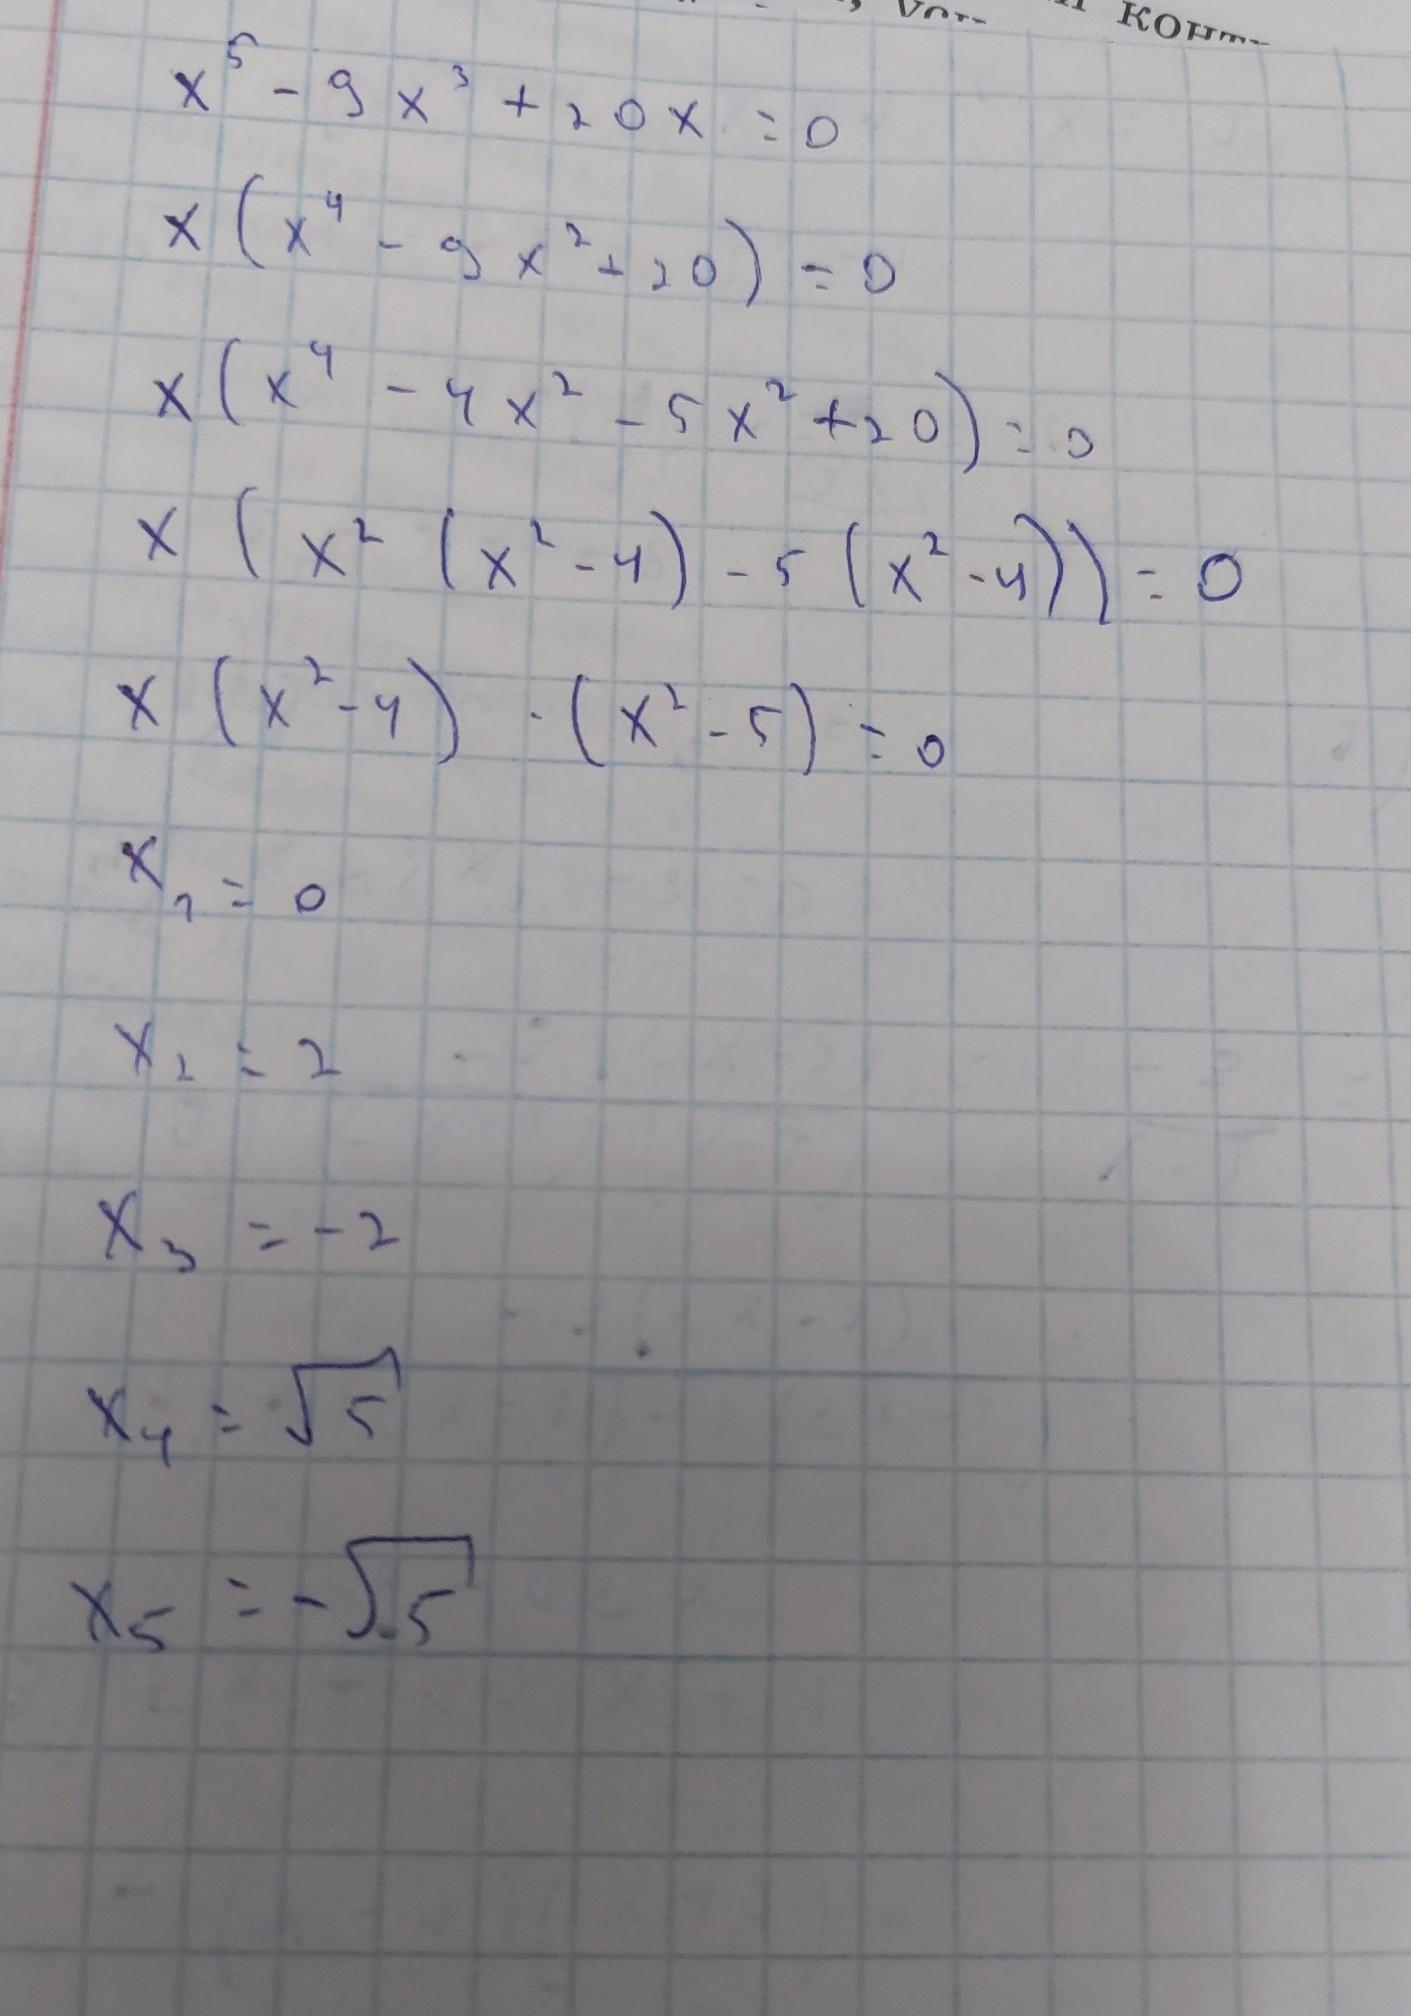 x⁵ - 9x³ + 20x = 0
x(x⁴ - 9x² + 20) = 0
x(x⁴ - 4x² - 5x² + 20) = 0
x(x²(x² - 4) - 5(x² - 4)) = 0
x(x² - 4) · (x² - 5) = 0
x₁ = 0
x₂ = 2
x₃ = -2
x₄ = √5
x₅ = -√5